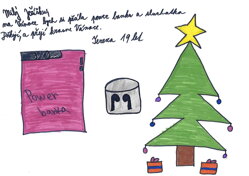 Milý Ježíšku,
na Vánoce bych si přála power banku a sluchátka
Děkuji a přeji krásné Vánoce.
Tereza 19 let
Power
banka